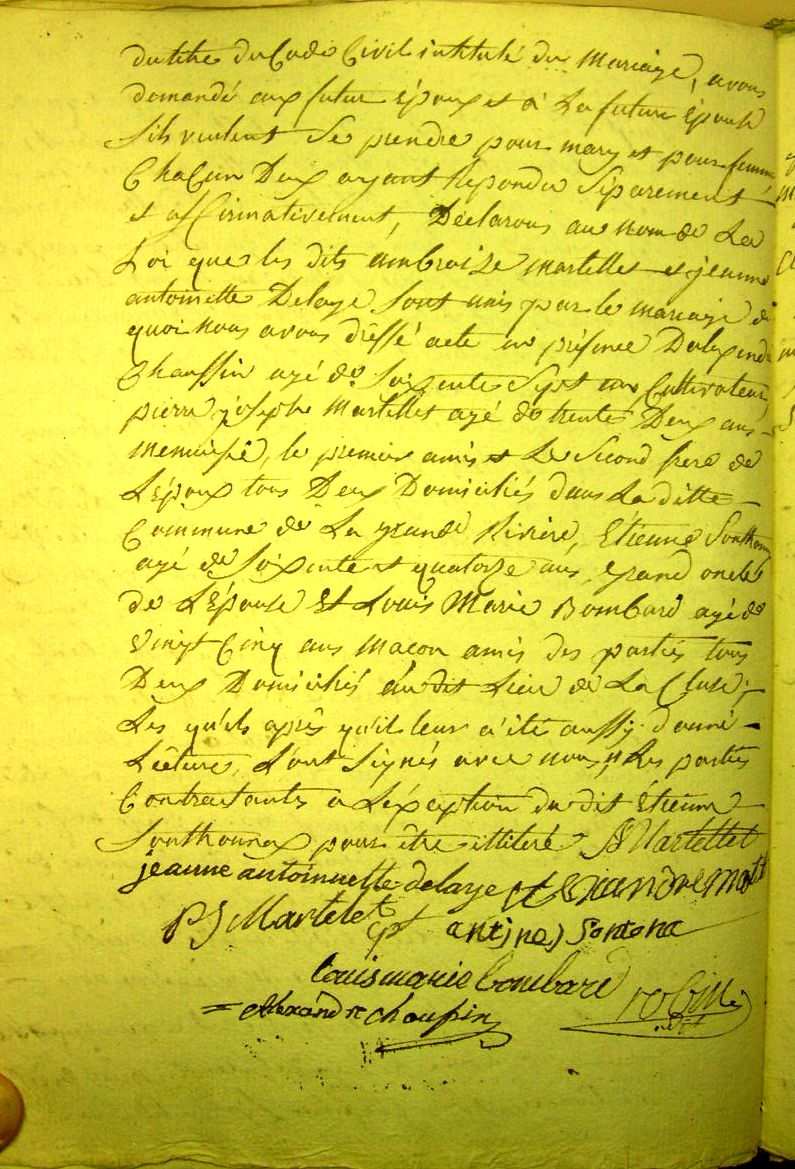 du titre du Code Civil intitulé du Mariage, avons
demandé aux futur Epoux et à La future Epouse
sils veulent Se prendre pour mary et pour femme
Chacun Deux ayant Repondu Séparement
et affirmativement, Déclarons au nom de La
Loi que les dits ambroize martellet et jeanne
antoinette Delaye Sont unis par le mariage de
quoi nous avons dressé acte en présence Dalexandre
Chauffin agé de Soixente Sept ans Cultivateur,
pierre joseph Martellet agé de trente Deux ans
menuisié, le premier amis et Le Second frere de
L'époux tous Deux Domiciliés dans La ditte
Commune de La grande Rivière, Etienne Southonnax
agé de Soixente et quatorze ans, grand oncle
de L'Epouse Et Louis Marie Bombard agé de
vingt Cinq ans maçon amis des parties tous
Deux Domiciliés du dit Lieu de La Cluse;
Les quels après qu'il leur a été aussy donné
Lecture, L'ont Signés avec nous, et Les parties
Contractantes a L'éxception du dit étienne
Southonnax pour être illiteré A Martellet
jeanne antoinnette delaye alexandre
P J Martelet
Louis marie bombard
= Alexandre choupin